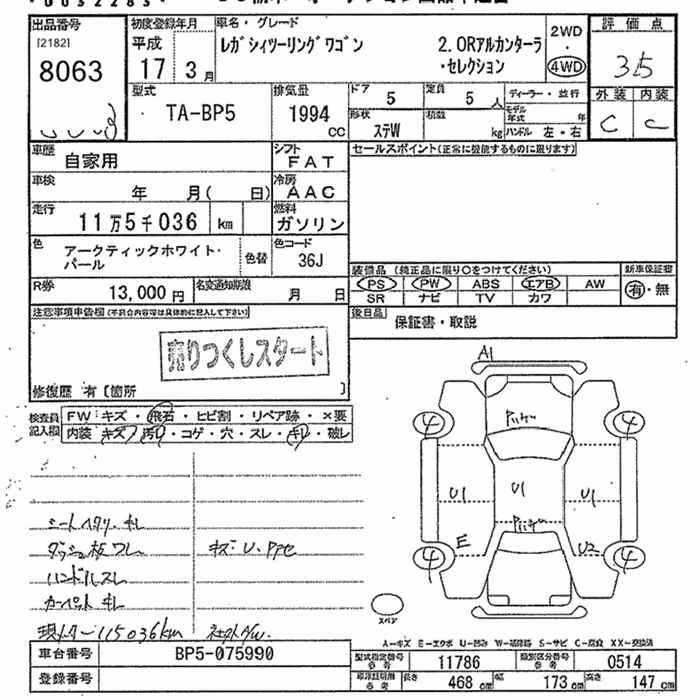 出品番号 初度登録年月 車名・グレード 2WD 評価点
[2182] 平成 レガシィツーリングワゴン 2.0Rアルカンターラ ・
8063 17年 3月 ・セレクション 4WD 3.5
型式 排気量 ドア 5 定員 5人 ディーラー・並行 外装 内装
TA-BP5 1994 CC 形状 ステW 積載 kg モデル年式 年 C C
ハンドル 左・右
車歴 自家用 シフト FAT セールスポイント(正常に機能するものに限ります)
車検 年 月( 日) 冷房 AAC
走行 11万5千036 km 燃料 ガソリン
色 アークティックホワイト・パール 色替 色コード 36J
装備品 (純正品に限り○をつけてください) 新車保証書
PS PW ABS エアB AW 有・無
SR ナビ TV カワ
R券 13,000円 名変通知期限 月 日
注意事項申告欄(不具合内容等は具体的に記入して下さい) 後日品 保証書・取説
売りつくしスタート
修復歴 有[箇所 ]
検査員記入欄 FW キズ・飛石・ヒビ割・リペア跡・×要
内装 キズ・汚れ・コゲ・穴・スレ・キレ・破レ
A1
4 4
U1 U1 U1
E U2
4 4
シートヘタリ・キレ
ダッシュ板ワレ キズ・U・PPE
ハンドルスレ
カーペットキレ
現メーター115036km 社外A/W.
スペア
A-キズ E-エクボ U-凹み W-補修跡 S-サビ C-腐食 XX-交換済
車台番号 BP5-075990 型式指定番号 参考 11786 類別区分番号 参考 0514
登録番号 長さ 468 cm 幅 173 cm 高さ 147 cm